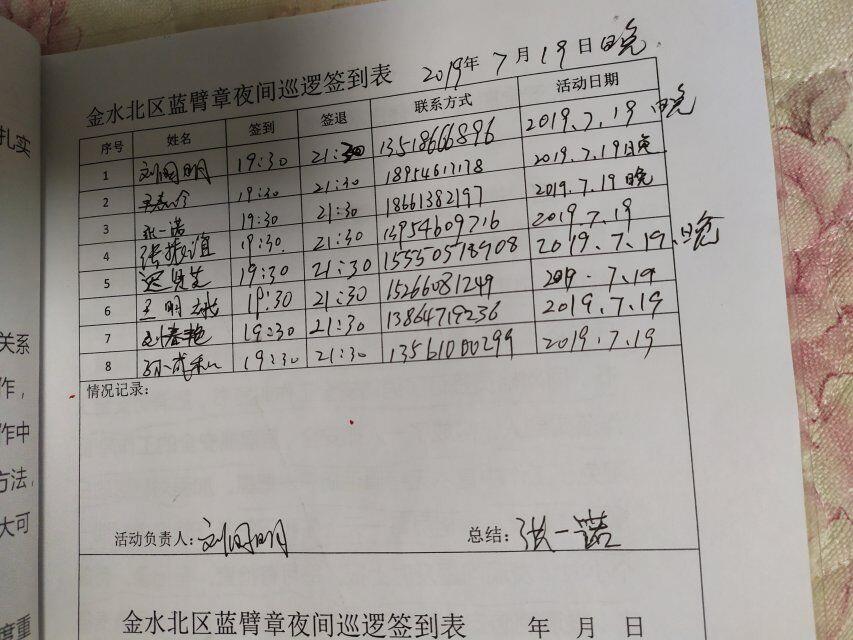 金水北区蓝臂章夜间巡逻签到表 2019年7月19日晚
序号 姓名 签到 签退 联系方式 活动日期
1 刘国明 19:30 21:30 13518666896 2019.7.19.晚
2 19:30 21:30 18954617178 2019.7.19晚
3 张一诺 19:30 21:30 18661382197 2019.7.19晚
4 19:30. 21:30 13954609716 2019.7.19
5 19:30 21:30 15550578908 2019.7.19.晚
6 王明 19:30 21:30 15266081249 2019.7.19
7 刘春艳 19:30 21:30 13864719236 2019.7.19
8 孙成 19:30 21:30 13561000299 2019.7.19
情况记录:
活动负责人: 刘国明 总结: 张一诺
金水北区蓝臂章夜间巡逻签到表 年 月 日
扎实
关系
作，
作中
方法，
大可
度重